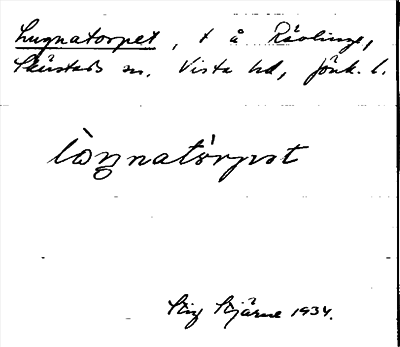 Lugnatorpet, t å Rävlinge,
Skärstads sn. Vista hd, Jönk. l.
lòŋnatórpət
Stig Stjärne 1934.